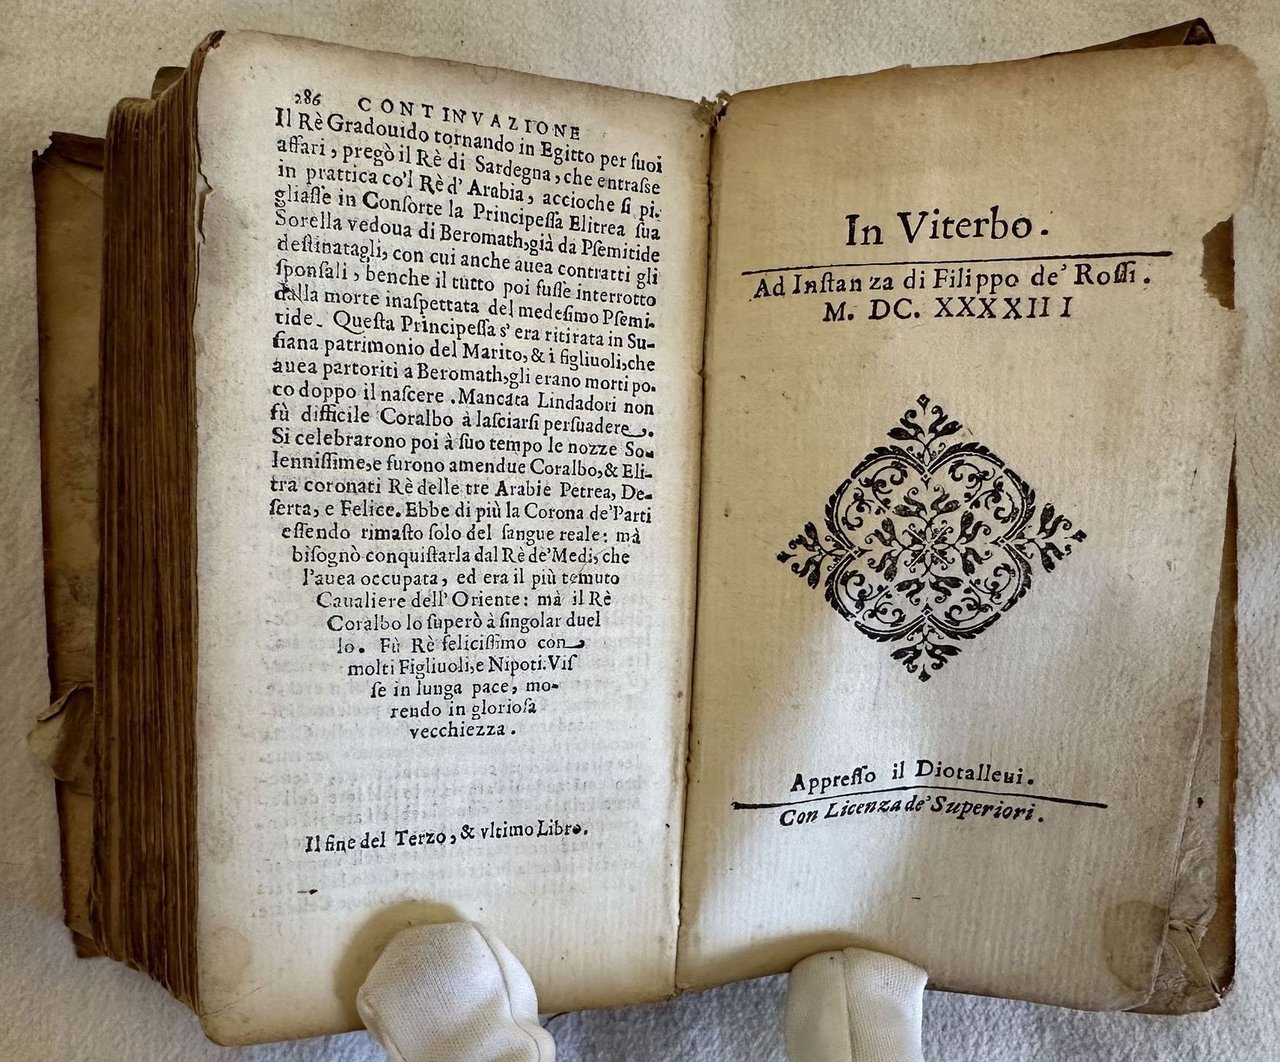 286 CONTINVAZIONE
Il Rè Gradouido tornando in Egitto per ſuoi
affari, pregò il Rè di Sardegna, che entraſſe
in prattica co'l Rè d'Arabia, accioche ſi pi-
gliaſſe in Conſorte la Principeſſa Elitrea ſua
Sorella vedoua di Beromath, già da Pſemitide
deſtinatagli, con cui anche auea contratti gli
ſponſali, benche il tutto poi fuſſe interrotto
dalla morte inaſpettata del medeſimo Pſemi-
tide. Queſta Principeſſa s'era ritirata in Su-
ſiana patrimonio del Marito, & i figliuoli, che
auea partoriti a Beromath, gli erano morti po-
co doppo il naſcere. Mancata Lindadori non
fù difficile Coralbo à laſciarſi perſuadere.
Si celebrarono poi à ſuo tempo le nozze So-
lenniſſime, e furono amendue Coralbo, & Eli-
tra coronati Rè delle tre Arabie Petrea, De-
ſerta, e Felice. Ebbe di più la Corona de'Parti
eſſendo rimaſto ſolo del ſangue reale: mà
biſognò conquiſtarla dal Rè de'Medi, che
l'auea occupata, ed era il più temuto
Caualiere dell'Oriente: mà il Rè
Coralbo lo ſuperò à ſingolar duel
lo. Fù Rè feliciſſimo con
molti Figliuoli, e Nipoti. Viſ
ſe in lunga pace, mo-
rendo in glorioſa
vecchiezza.
Il fine del Terzo, & vltimo Libro.
In Viterbo.
Ad Inſtanza di Filippo de' Roſſi.
M. DC. XXXXIII
Appreſſo il Diotalleui.
Con Licenza de' Superiori.